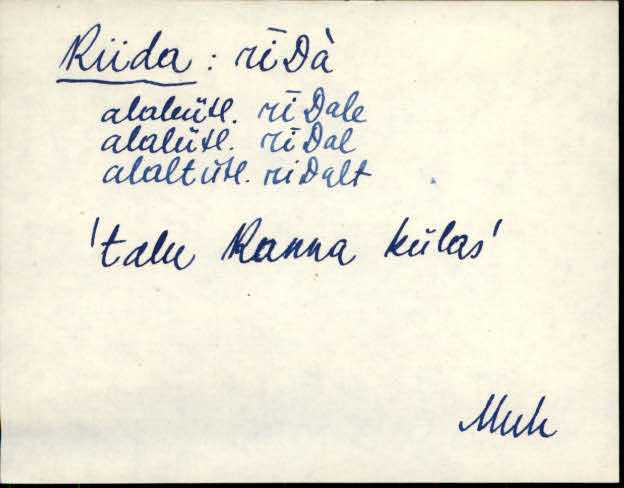 Riida : rīDà
alaleütl. rīDale
alalütl. rīDal
alaltütl. riDalt
'talu Ranna külas'
Muh